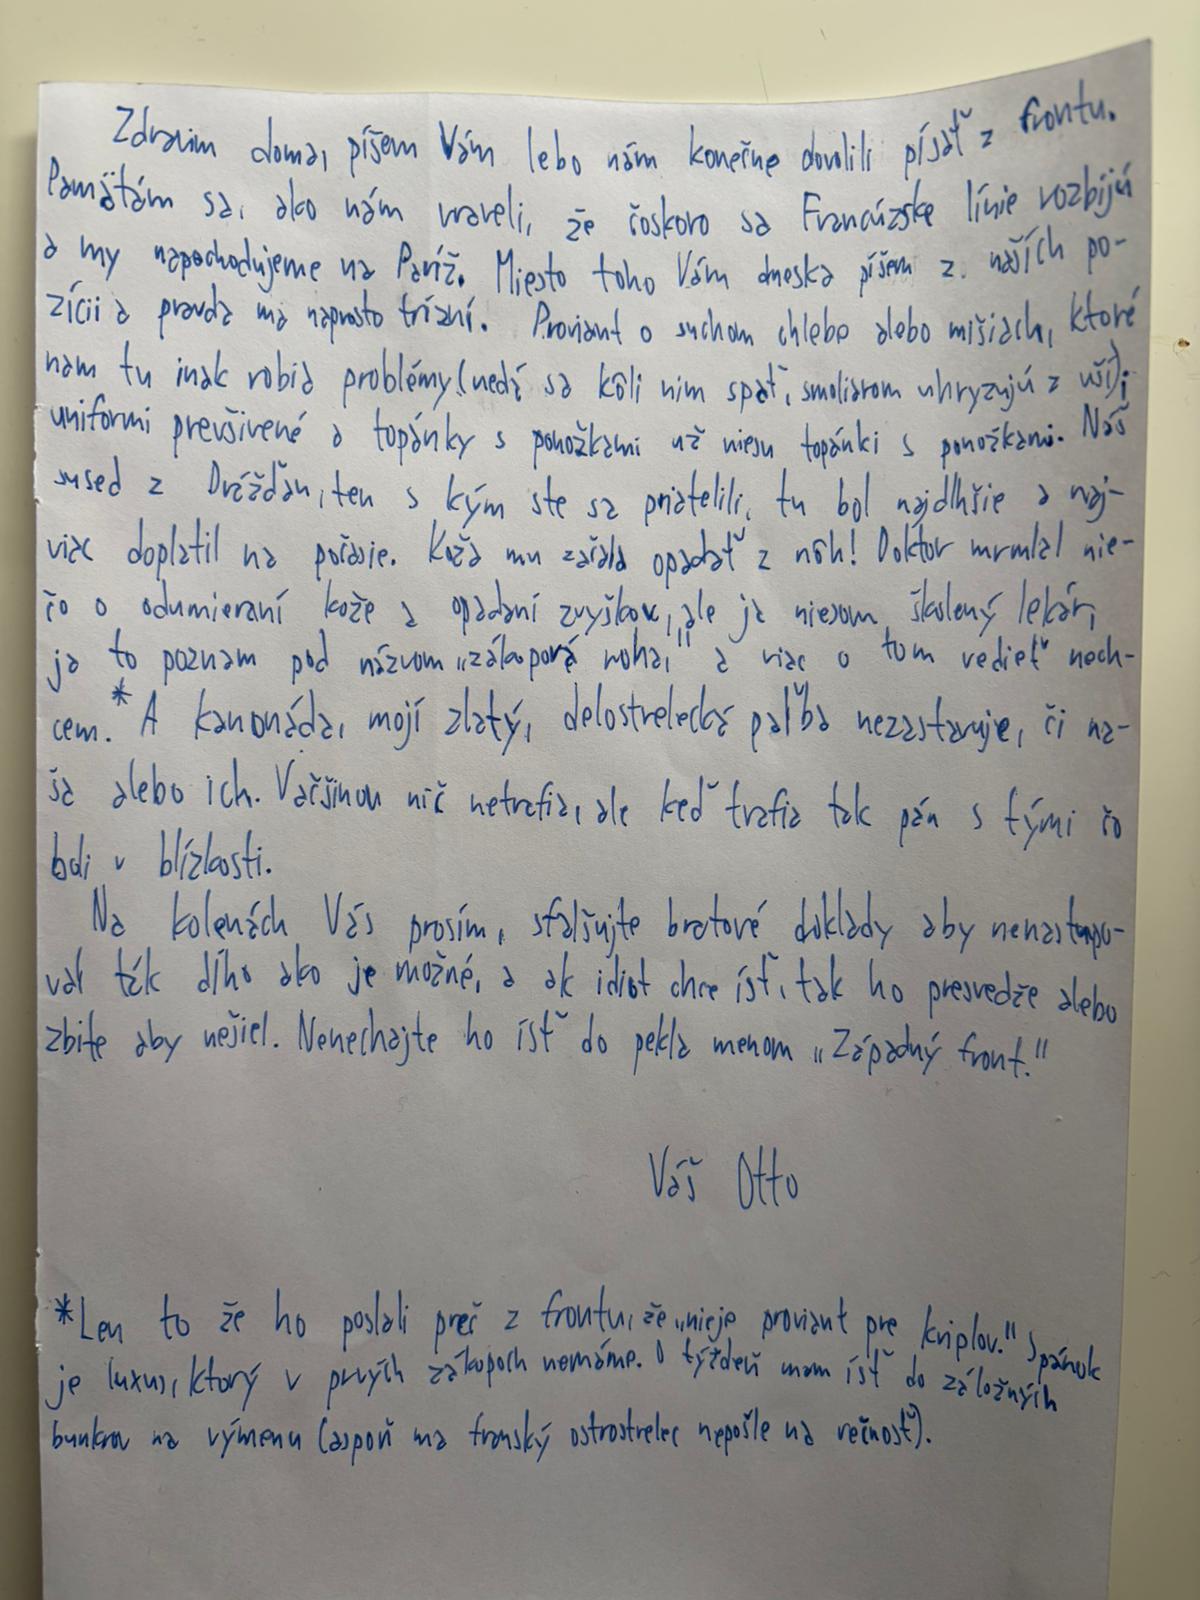 Zdravim doma, píšem Vám lebo nám konečne dovolili písať z frontu.
Pamätám sa, ako nám vraveli, že čoskoro sa Francúzske línie rozbijú
a my napochodujeme na Paríž. Miesto toho Vám dneska píšem z našich po-
zícii a pravda ma naprosto trízni. Proviant o suchom chlebe alebo mišiach, ktoré
nam tu inak robia problémy (nedá sa kôli nim spať, smoliarom uhryzujú z uší);
uniformi prevšivené a topánky s ponožkami už niesu topánki s ponožkami. Náš
sused z Drážďan, ten s kým ste sa priatelili, tu bol najdlhšie a naj-
viac doplatil na počasie. Koža mu začala opadať z nôh! Doktor mrmlal nie-
čo o odumieraní kože a opadaní zvyškov, ale ja niesom školený lekár,
ja to poznam pod názvom „zákopová noha," a viac o tom vedieť nech-
cem.* A kanonáda, mojí zlatý, delostrelecká paľba nezastavuje, či na-
ša alebo ich. Vačšinou nič netrafia, ale keď trafia tak pán s tými čo
boli v blízkosti.
Na kolenách Vás prosím, sfalšujte bratové doklady aby nenastupo-
val ták dlho ako je možné, a ak idiot chce ísť, tak ho presvedže alebo
zbite aby nešiel. Nenechajte ho ísť do pekla menom „Západný front."
Váš Otto
*Len to že ho poslali preč z frontu, že „nieje proviant pre kriplov." Spánok
je luxus, ktorý v prvých zákopoch nemáme. O týždeň mam ísť do záložných
bunkrov na výmenu (aspoň ma franský ostrostrelec nepošle na večnosť).